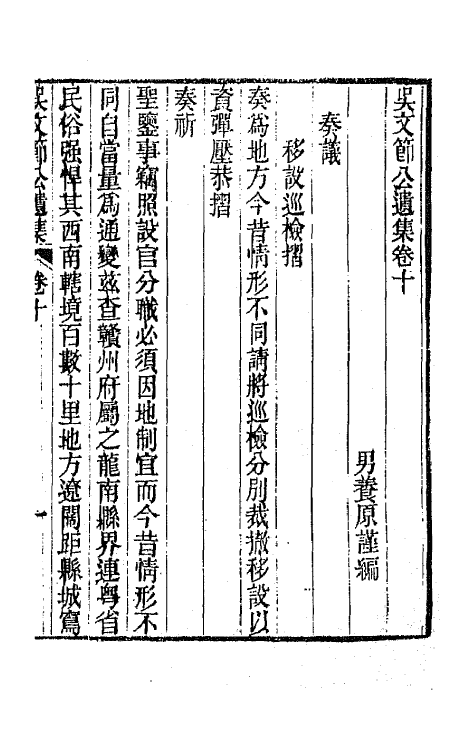 吳文節公遺集卷十
男養原謹編
奏議
移設巡檢摺
奏爲地方今昔情形不同請將巡檢分別裁撤移設以
資彈壓恭摺
奏祈
聖鑒事竊照設官分職必須因地制宜而今昔情形不
同自當量爲通變茲查贛州府屬之龍南縣界連粤省
民俗强悍其西南轄境百數十里地方遼闊距縣城窵
吳文節公遺集 卷十 一